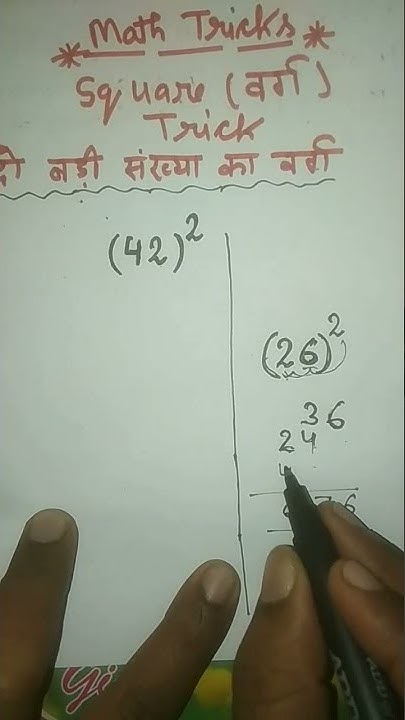 * Math Tricks *
Square (वर्ग)
Trick
दो बड़ी संख्या का वर्ग
(42)²
(26)²
36
24
4
676